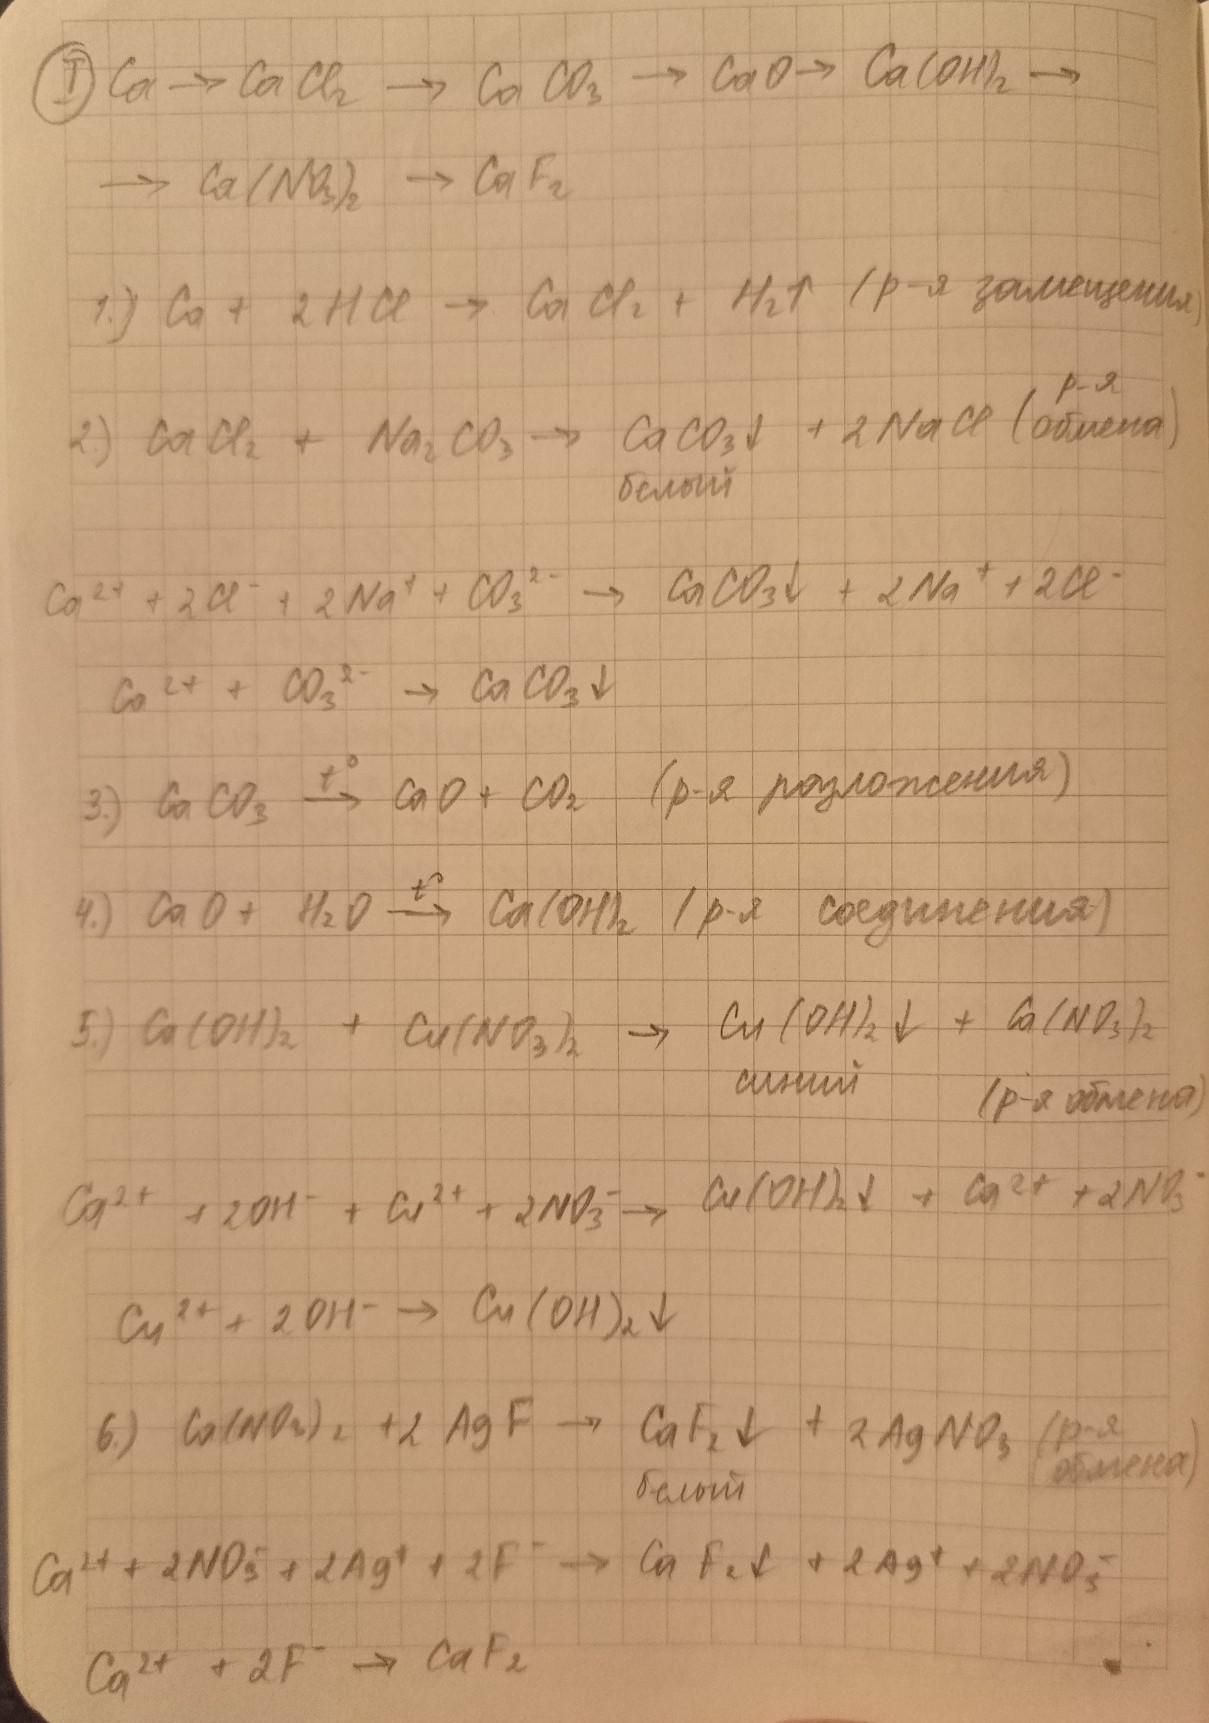 I Ca → CaCl₂ → CaCO₃ → CaO → Ca(OH)₂ →
→ Ca(NO₃)₂ → CaF₂
1.) Ca + 2HCl → CaCl₂ + H₂↑ (р-я замещения)
2.) CaCl₂ + Na₂CO₃ → CaCO₃↓ + 2NaCl (р-я обмена)
белый
Ca²⁺ + 2Cl⁻ + 2Na⁺ + CO₃²⁻ → CaCO₃↓ + 2Na⁺ + 2Cl⁻
Ca²⁺ + CO₃²⁻ → CaCO₃↓
3.) CaCO₃ t°→ CaO + CO₂ (р-я разложения)
4.) CaO + H₂O t°→ Ca(OH)₂ (р-я соединения)
5.) Ca(OH)₂ + Cu(NO₃)₂ → Cu(OH)₂↓ + Ca(NO₃)₂
синий (р-я обмена)
Ca²⁺ + 2OH⁻ + Cu²⁺ + 2NO₃⁻ → Cu(OH)₂↓ + Ca²⁺ + 2NO₃⁻
Cu²⁺ + 2OH⁻ → Cu(OH)₂↓
6.) Ca(NO₃)₂ + 2AgF → CaF₂↓ + 2AgNO₃ (р-я обмена)
белый
Ca²⁺ + 2NO₃⁻ + 2Ag⁺ + 2F⁻ → CaF₂↓ + 2Ag⁺ + 2NO₃⁻
Ca²⁺ + 2F⁻ → CaF₂